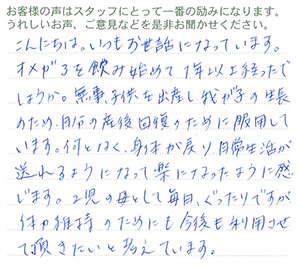 お客様の声はスタッフにとって一番の励みになります。
うれしいお声、ご意見などを是非お聞かせください。
こんにちは。いつもお世話になっています。
オメガ3を飲み始めて1年以上経ったで
しょうか。無事、子供を出産し我が子の生長
のため、自分の産後回復のために服用して
います。何となく、身体が戻り日常生活が
送れるようになって楽になったように感
じます。2児の母として毎日、ぐったりですが
体力維持のためにも今後も利用させ
て頂きたいと考えています。